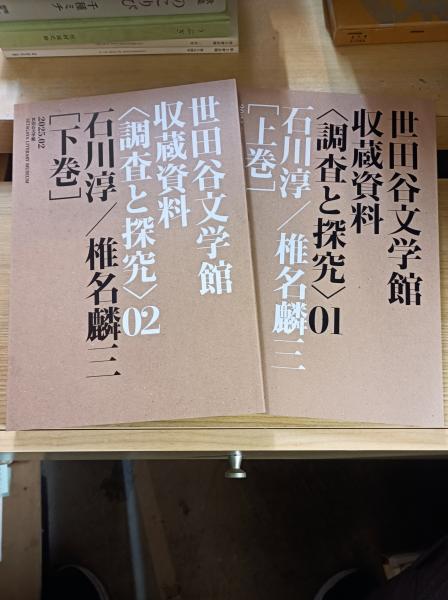 世田谷文学館
収蔵資料
〈調査と探究〉01
石川淳／椎名麟三
［上巻］
世田谷文学館
収蔵資料
〈調査と探究〉02
石川淳／椎名麟三
［下巻］
2025.02
SETAGAYA LITERARY MUSEUM